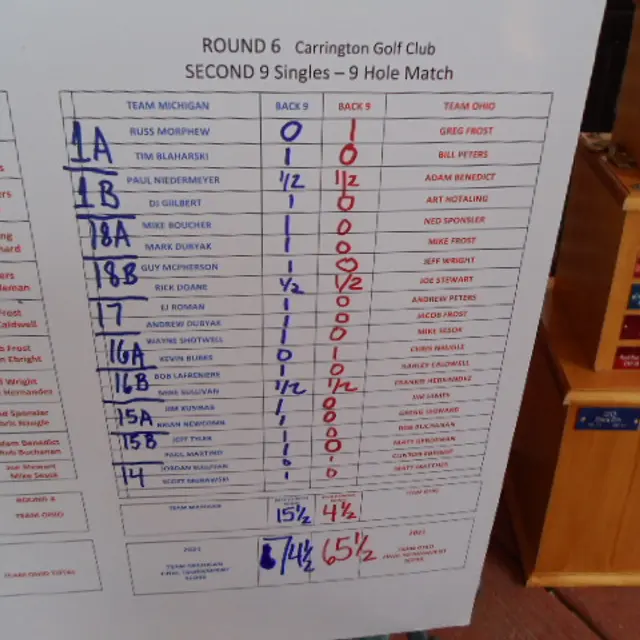 ROUND 6 Carrington Golf Club
SECOND 9 Singles – 9 Hole Match
TEAM MICHIGAN BACK 9 BACK 9 TEAM OHIO
1A RUSS MORPHEW 0 1 GREG FROST
TIM BLAHARSKI 1 0 BILL PETERS
1B PAUL NIEDERMEYER 1/2 1/2 ADAM BENEDICT
DJ GILBERT 1 0 ART HOTALING
18A MIKE BOUCHER 1 0 NED SPONSLER
MARK DUBYAK 1 0 MIKE FROST
18B GUY MCPHERSON 1 0 JEFF WRIGHT
RICK DOANE 1/2 1/2 JOE STEWART
17 EJ ROMAN 1 0 ANDREW PETERS
ANDREW DUBYAK 1 0 JACOB FROST
16A WAYNE SHOTWELL 1 0 MIKE SESOK
KEVIN BURKE 0 1 CHRIS NAUGLE
16B BOB LAFRENIERE 1 0 HARLEY CALDWELL
MIKE SULLIVAN 1/2 1/2 FRANKIE HERNANDEZ
15A JIM KUNKAS 1 0 JIM JAMES
BRIAN NEWCOMB 1 0 GREGG LEONARD
15B JEFF TYLER 1 0 ROB BUCHANAN
PAUL MARTINO 1 0
JORDAN 0 1
14 SCOTT MURAWSKI 1 0
TEAM MICHIGAN 15 1/2 4 1/2 TEAM OHIO
2021 TEAM MICHIGAN FINAL TOURNAMENT SCORE 74 1/2 65 1/2 2021 TEAM OHIO FINAL TOURNAMENT SCORE
Frost
Caldwell
Frost
Ebright
Wright
Hernandez
Sponsler
Naugle
Benedict
Buchanan
Joe Stewart
Mike Sesok
TEAM OHIO
TEAM OHIO TOTAL